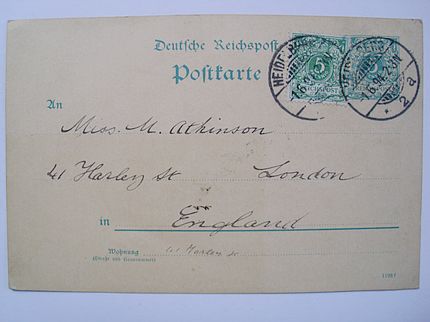 Deutsche Reichspost
Postkarte
5
REICHSPOST
HEIDELBERG
1.6.94.2-3N
2a
An
Miss. M. Atkinson
41 Harley St London
in England
Wohnung 41 Harley St
(Straße und Hausnummer)